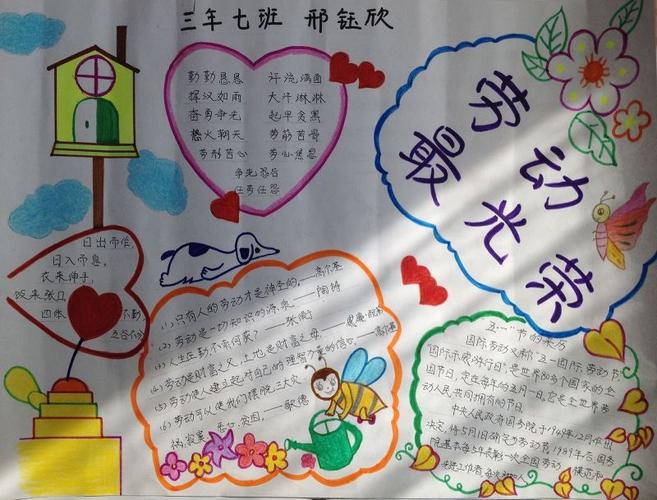 三年七班 邢钰欣
勤勤恳恳 汗流满面
挥汉如雨 大汗淋淋
奋勇争光 起早贪黑
热火朝天 劳筋苦骨
劳形苦心 劳心焦思
争先恐后
任劳任怨
劳动
最光荣
日出而作,
日入而息。
衣来伸手,
饭来张口
四体 不勤,
五谷不分
(1)只有人的劳动才是神圣的。——高尔基
(2)劳动是一切知识的源泉。——陶铸
(3)人生在勤,不索何获?——张衡
(4)劳动是财富之父,土地是财富之母。——威廉·配第
(5)劳动使人建立起对自己的理智力量的信心。——高尔基
(6)劳动可以使我们摆脱三大灾
祸:寂寞、恶心、贫困。——歌德
五一节的来历
国际劳动节又称"五一国际劳动节
国际示威游行日",是世界80多个国家的全
国节日,定在每年的五月一日,它是全世界劳
动人民共同拥有的节日
中央人民政府国务院于1949年12月作出
决定,将5月1日确定为劳动节。1989年后,国务
院基本每5年表彰一次全国劳动 模范和
先进工作者